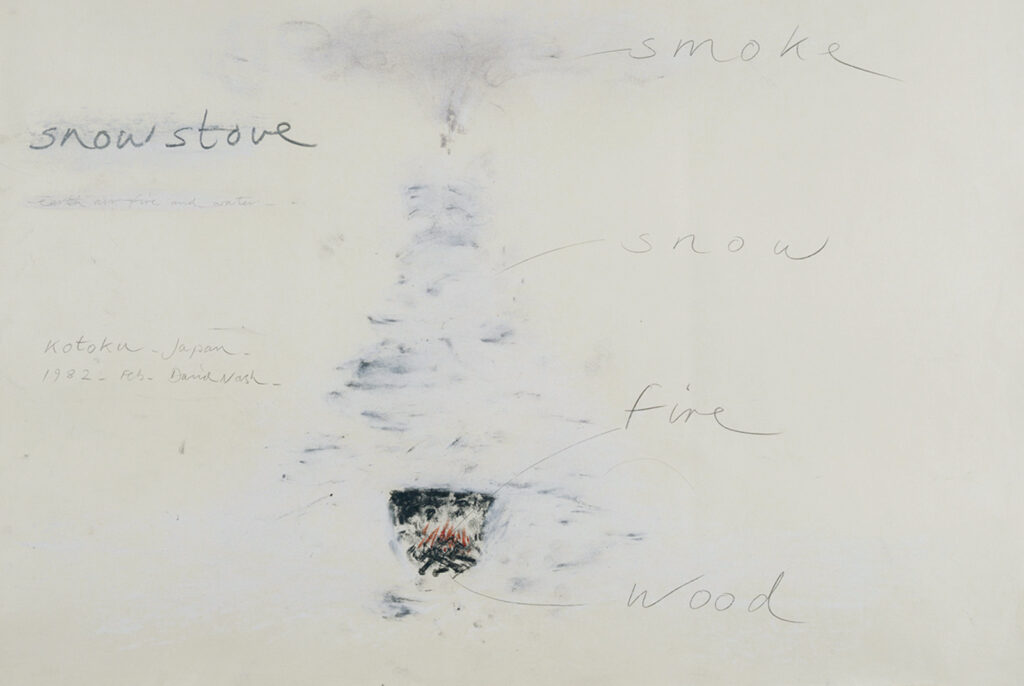 smoke
snow stove
earth air fire and water
snow
Kotoku - Japan -
1982 - Feb - David Nash -
fire
wood